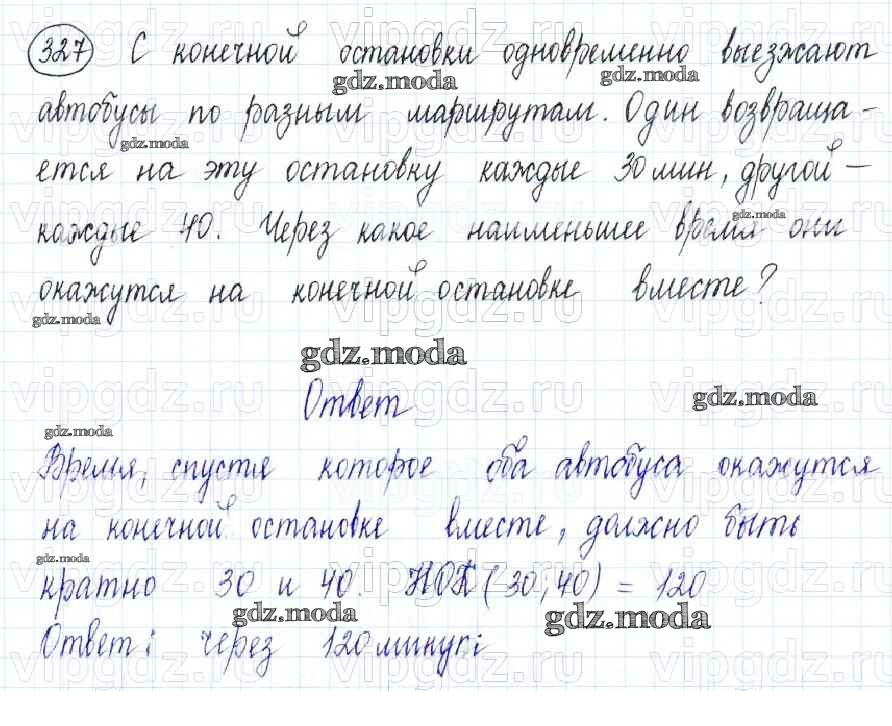 327 С конечной остановки одновременно выезжают
автобусы по разным маршрутам. Один возвраща-
ется на эту остановку каждые 30 мин, другой –
каждые 40. Через какое наименьшее время они
окажутся на конечной остановке вместе?
Ответ
Время, спустя которое оба автобуса окажутся
на конечной остановке вместе, должно быть
кратно 30 и 40. НОК (30; 40) = 120
Ответ: через 120 минут
gdz.moda
vipgdz.ru